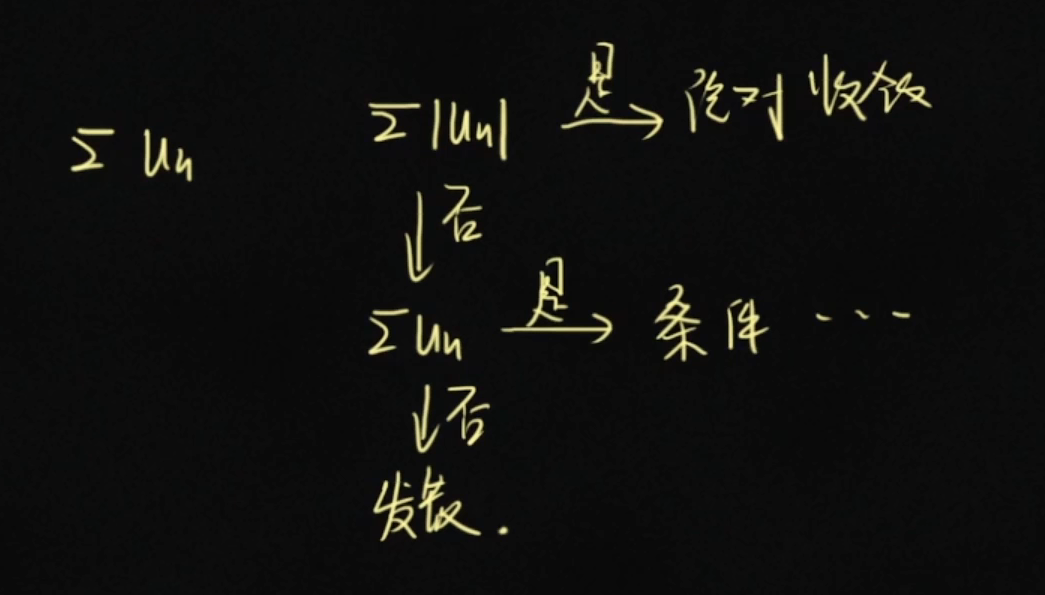 ∑ Uₙ
∑ |Uₙ| 是 → 绝对收敛
↓ 否
∑ Uₙ 是 → 条件 ……
↓ 否
发散.